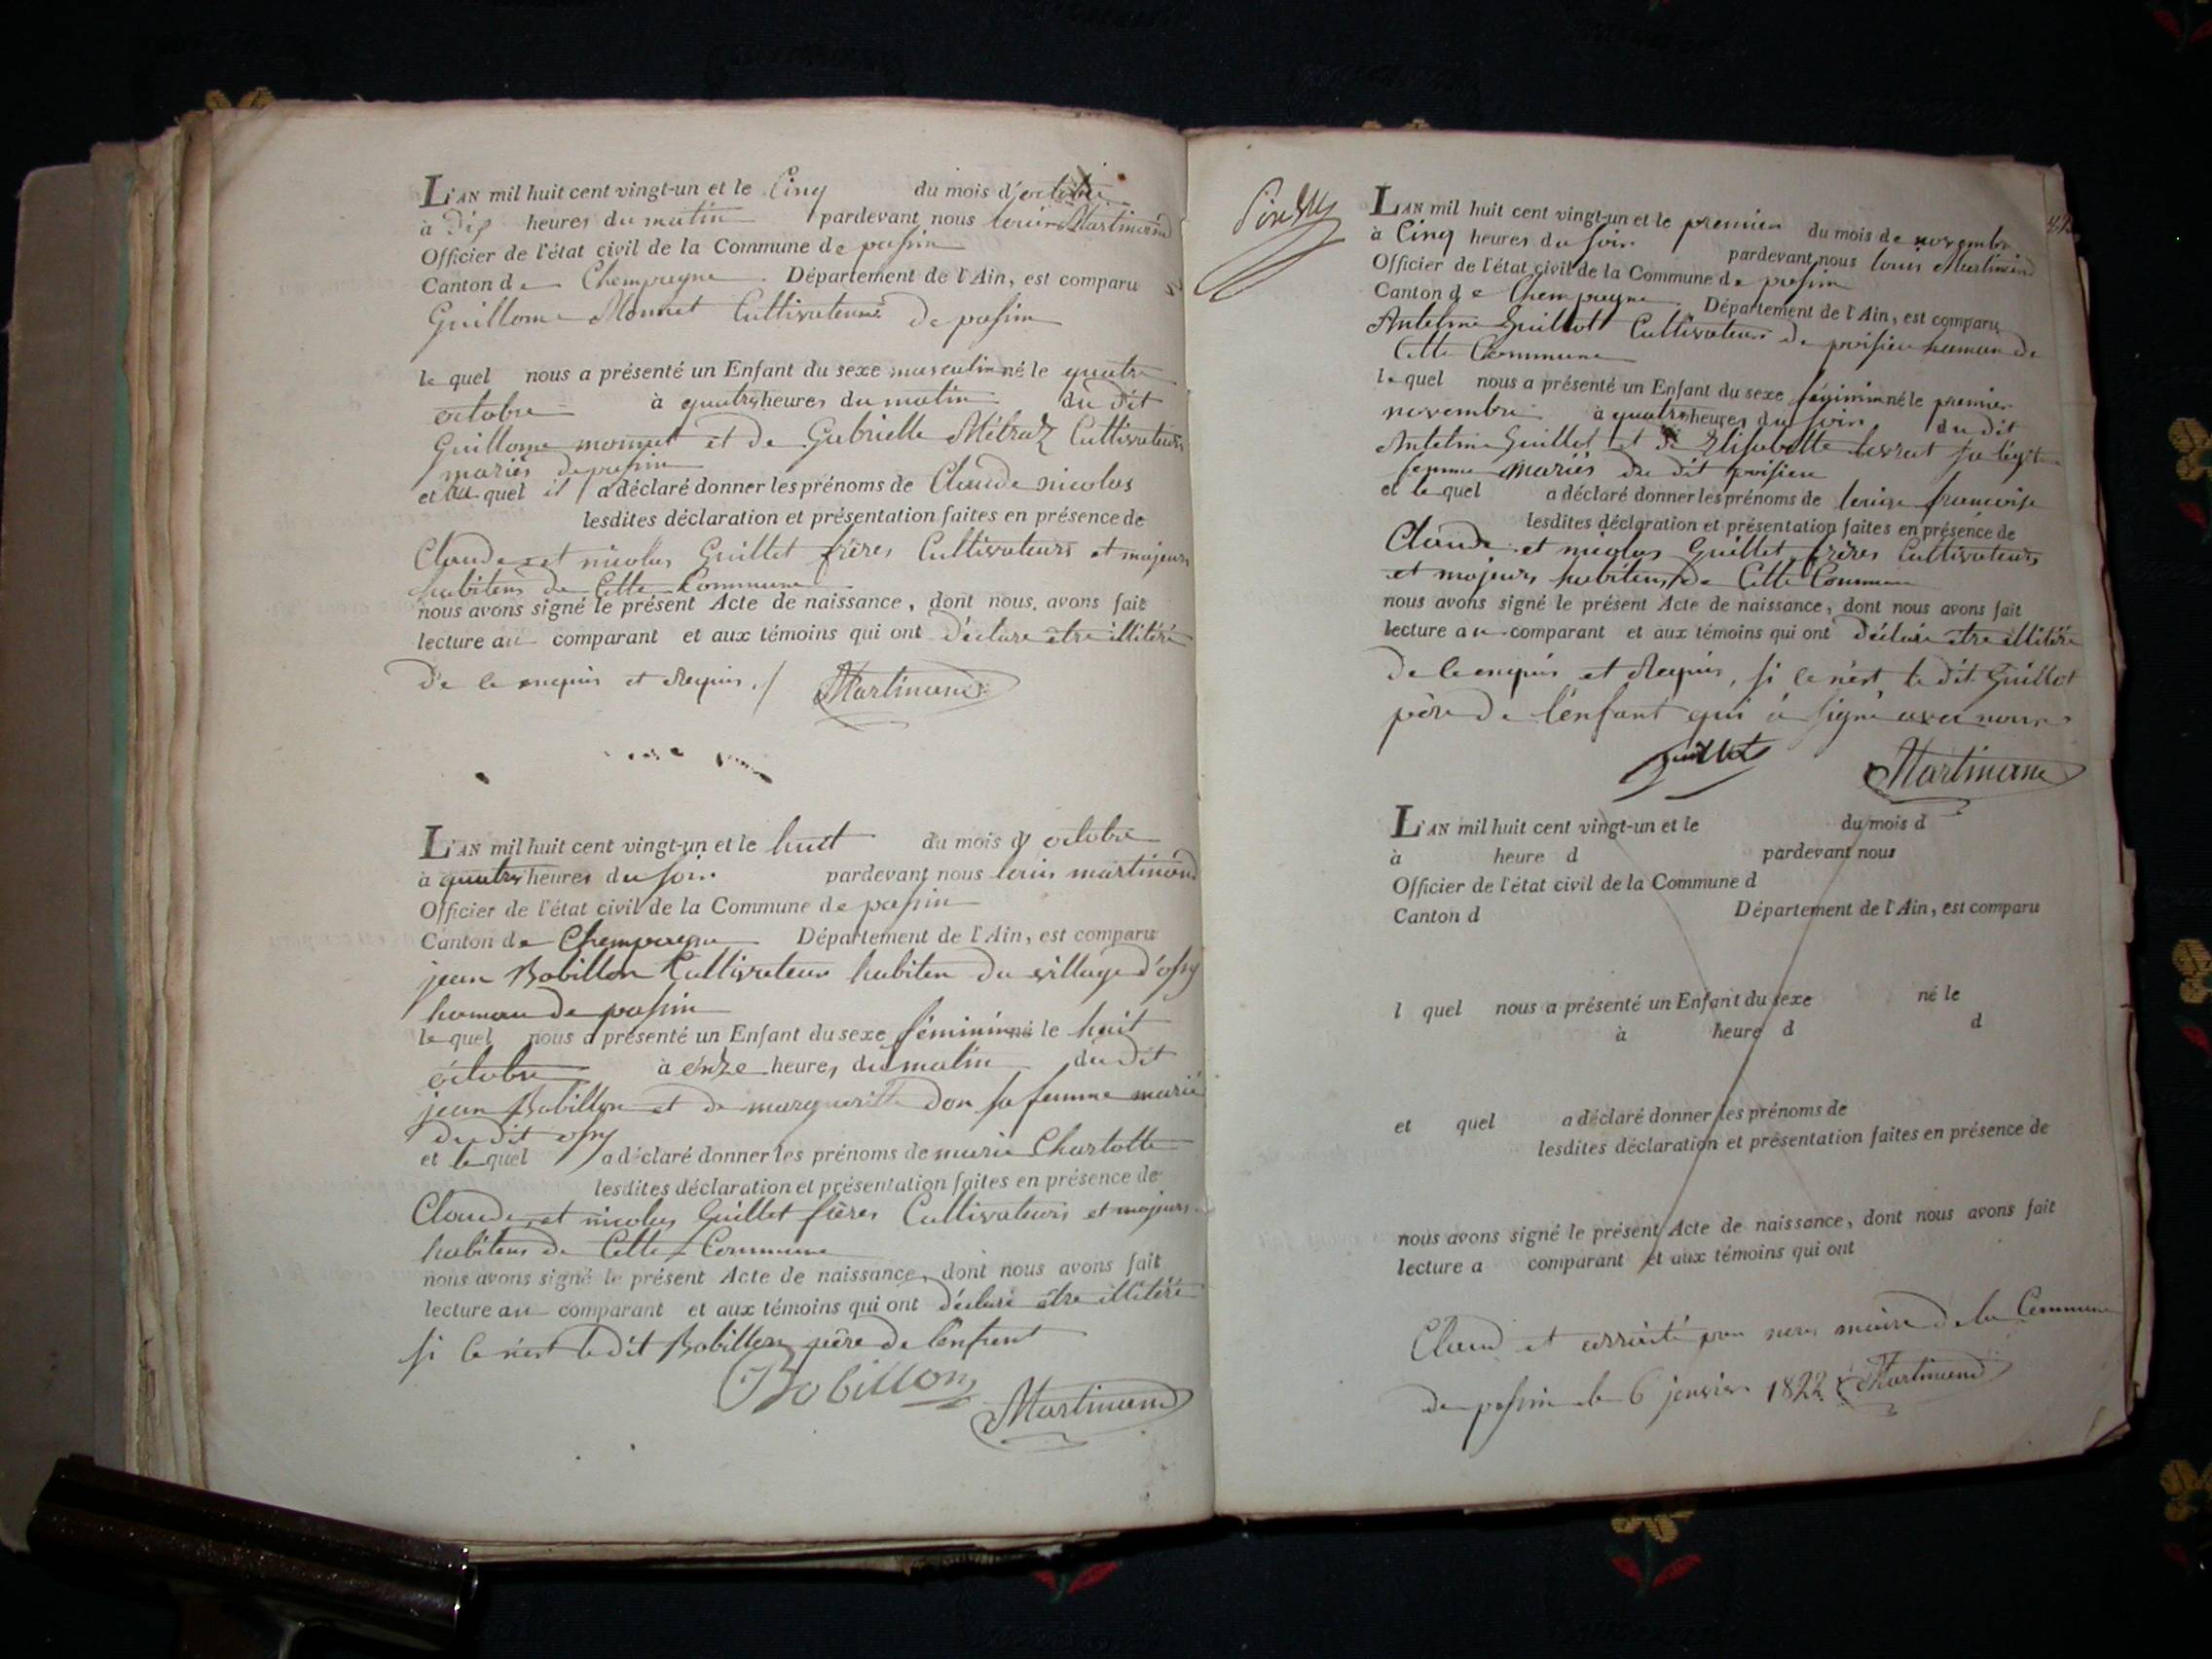 L'AN mil huit cent vingt-un et le Cinq du mois d'octobre
à dix heures du matin pardevant nous louis Martinand
Officier de l'état civil de la Commune de passin
Canton de Champagne. Département de l'Ain, est comparu
Guillome Monnet Cultivateur de passin
lequel nous a présenté un Enfant du sexe masculin né le quatre
octobre à quatre heures du matin du dit
Guillome monnet et de Gabrielle Métraz Cultivateurs
mariés de passin
et au quel il a déclaré donner les prénoms de Claude nicolas
lesdites déclaration et présentation faites en présence de
Claude et nicolas Guillet frères Cultivateurs et majeurs
habitens de Cette Commune
nous avons signé le présent Acte de naissance, dont nous avons fait
lecture au comparant et aux témoins qui ont déclare être illitéré
de ce enquis et Requis. Martinand
L'AN mil huit cent vingt-un et le huit du mois d' octobre
à quatre heures du soir pardevant nous louis martinand
Officier de l'état civil de la Commune de passin
Canton de Champagne Département de l'Ain, est comparu
jean Bobillon Cultivateur habiten du village d'ossy
hamau de passin
lequel nous a présenté un Enfant du sexe féminin né le huit
octobre à onze heures du matin du dit
jean Bobillon et de margueritte Don sa femme marié
du dit ossy
et lequel a déclaré donner les prénoms de marie Charlotte
lesdites déclaration et présentation faites en présence de
Claude et nicolas Guillet frères Cultivateurs et majeurs
habitens de Cette Commune
nous avons signé le présent Acte de naissance, dont nous avons fait
lecture au comparant et aux témoins qui ont déclaré être illitéré
si ce n'est le dit Bobillon père de lenfent
Bobillon
Martinand
L'AN mil huit cent vingt-un et le premier du mois de novembre
à Cinq heures du soir pardevant nous louis Martinand
Officier de l'état civil de la Commune de passin
Canton de Champagne. Département de l'Ain, est comparu
Antelme Guillot Cultivateur de poisieu hamau de
Cette Commune
lequel nous a présenté un Enfant du sexe féminin né le premier
novembre à quatre heures du soir du dit
Antelme Guillot et de Elisabette berrat sa légit
femme mariés du dit poisieu
et lequel a déclaré donner les prénoms de louise francoise
lesdites déclaration et présentation faites en présence de
Claude et nicolas Guillet frères Cultivateurs
et majeurs habitens de Cette Commune
nous avons signé le présent Acte de naissance, dont nous avons fait
lecture au comparant et aux témoins qui ont déclaré être illitéré
de ce enquis et Requis, si ce n'est le dit Guillot
père de l'enfant qui a signé avec nous
guillot
Martinand
L'AN mil huit cent vingt-un et le du mois d
à heure d pardevant nous
Officier de l'état civil de la Commune d
Canton d Département de l'Ain, est comparu
l quel nous a présenté un Enfant du sexe né le
à heure d d
et quel a déclaré donner les prénoms de
lesdites déclaration et présentation faites en présence de
nous avons signé le présent Acte de naissance, dont nous avons fait
lecture a comparant et aux témoins qui ont
Claud et arreité par nous maire de la Commune
de passin le 6 jenvier 1822 Martinand